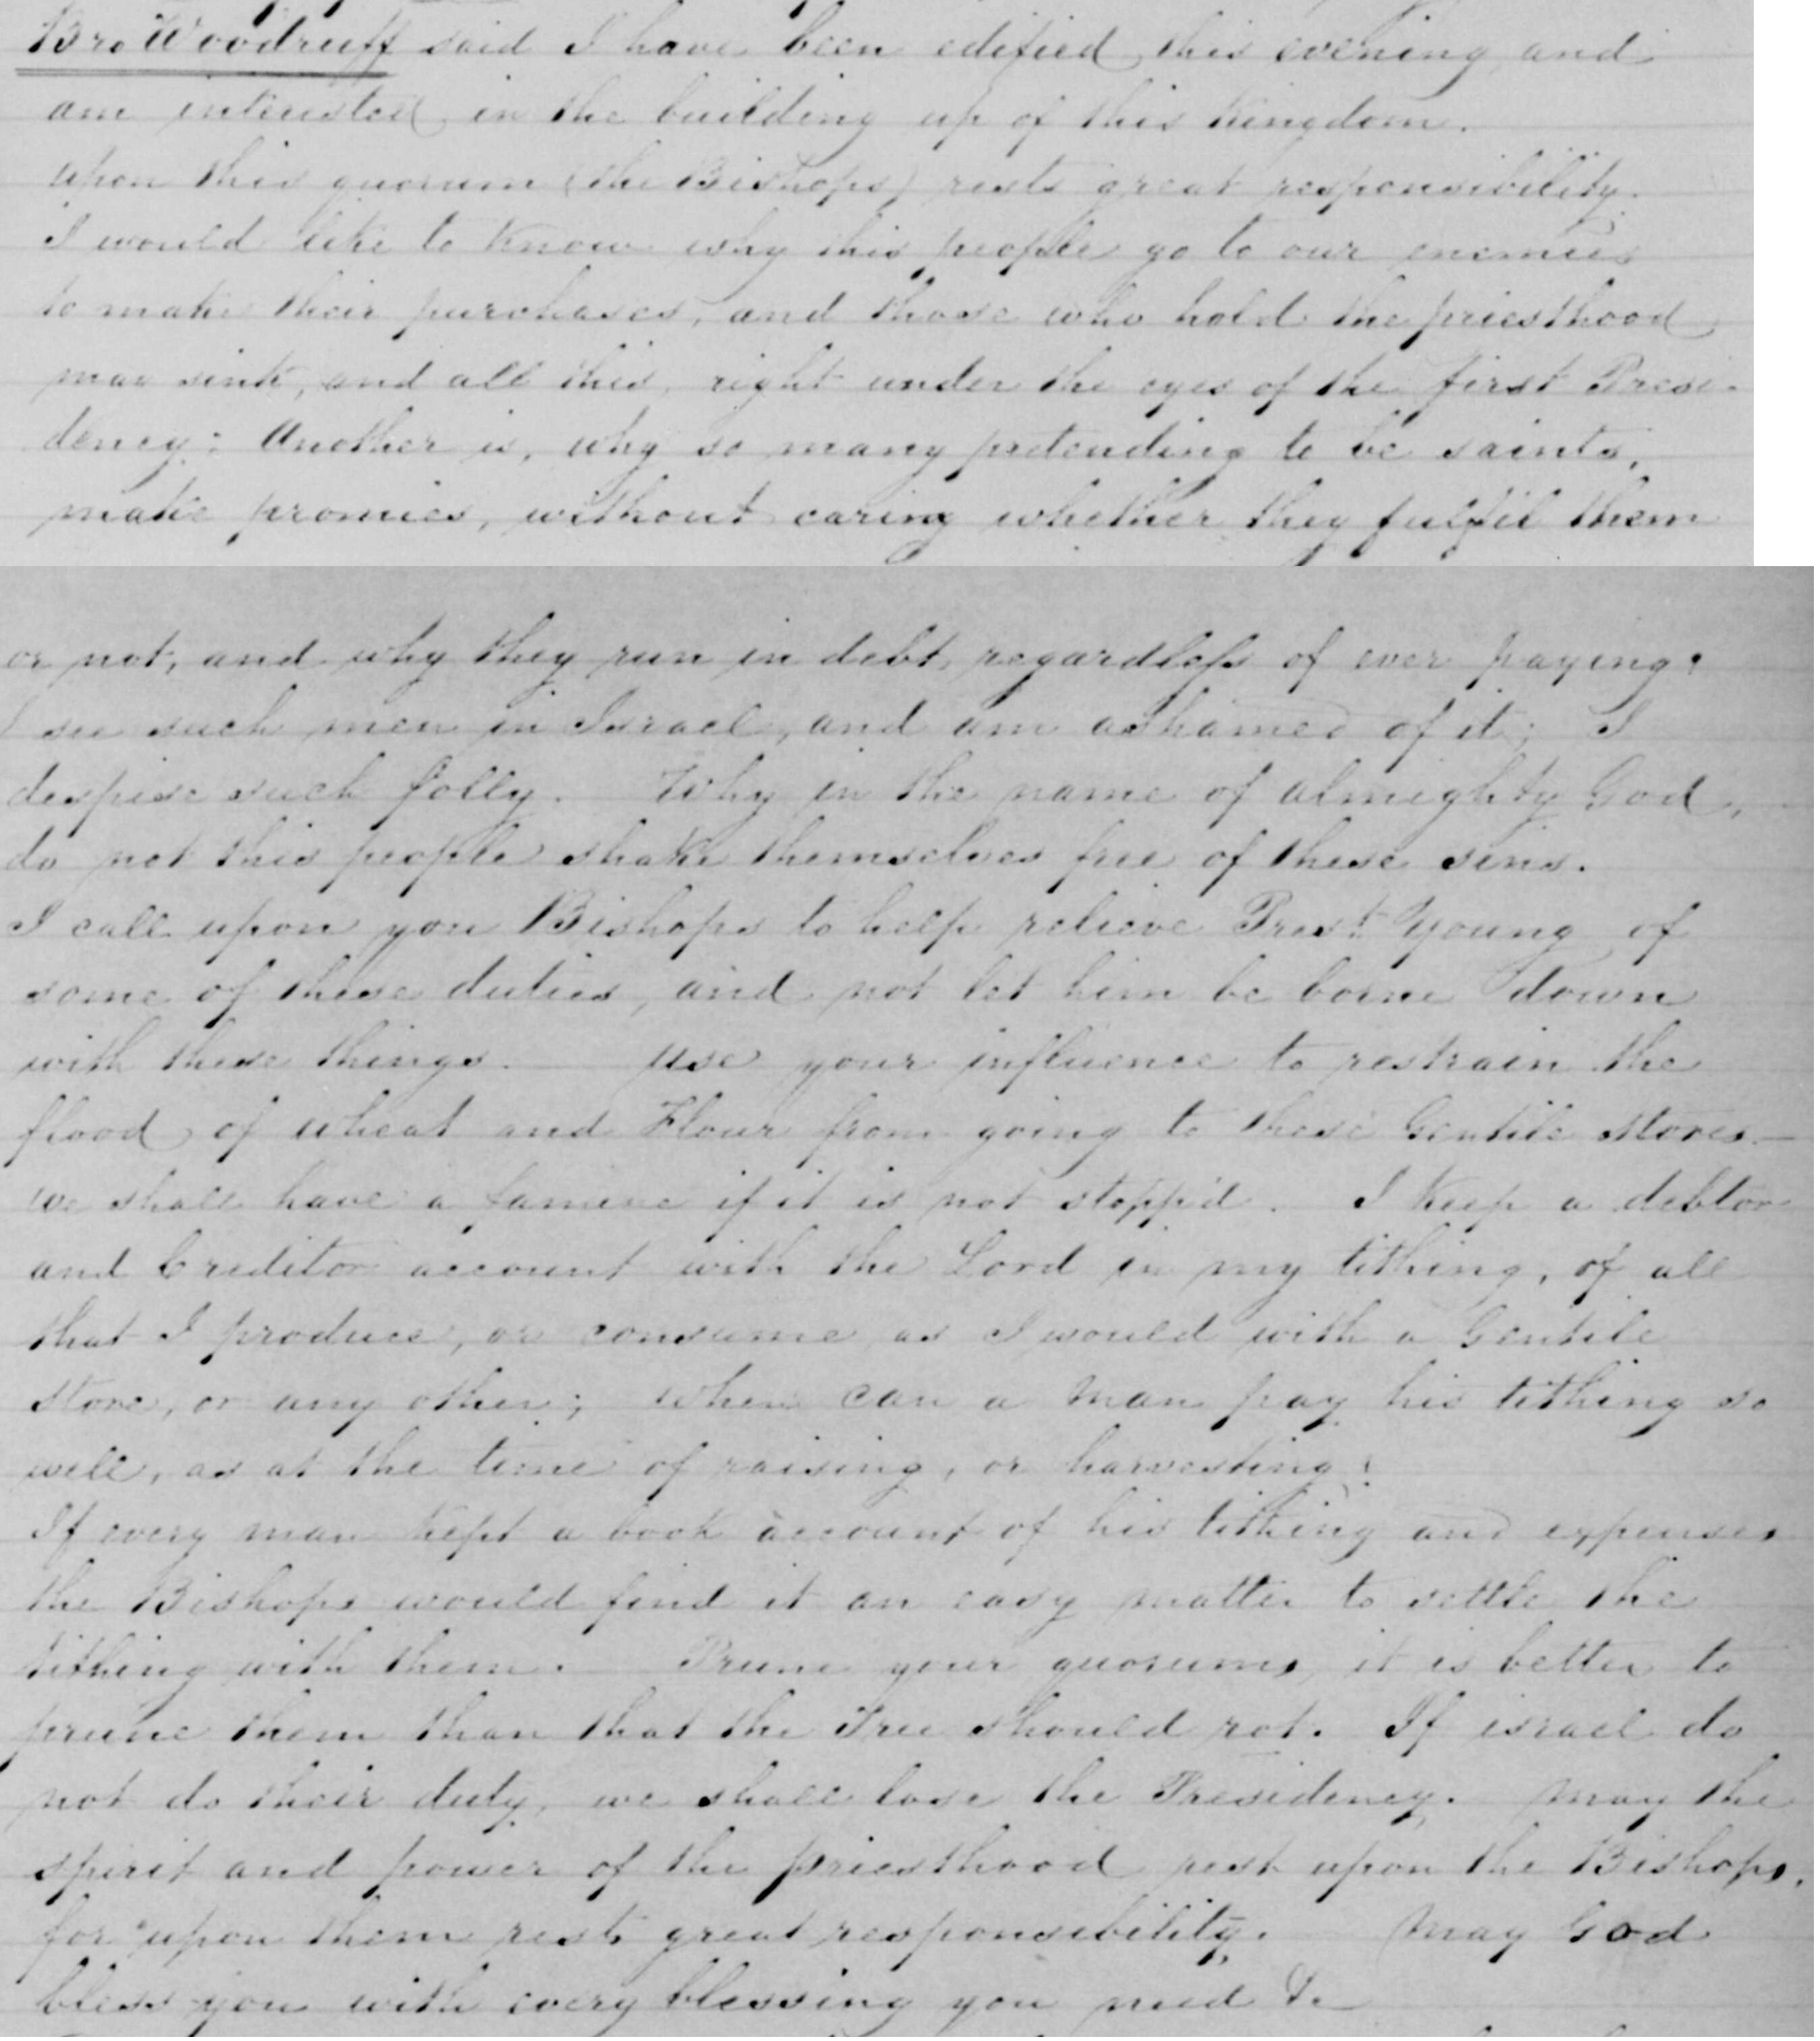 Bro Woodruff said I have been edified this evening and
am interested in the building up of this Kingdom.
upon this quorum (the Bishops) rests great responsibility.
I would like to know why this people go to our enemies
to make their purchases, and those who hold the priesthood
may sink, and all this, right under the eyes of the first Presi-
dency: Another is, why so many pretending to be saints,
make promies, without caring whether they fulfil them
or not, and why they run in debt, regardless of ever paying;
I see such men in Israel, and am ashamed of it; I
despise such folly. Why in the name of almighty God,
do not this people shake themselves free of these sins.
I call upon you Bishops to help relieve Prest Young of
some of these duties, and not let him be borne down
with these things. use your influence to restrain the
flood of wheat and Flour from going to these Gentile stores—
we shall have a famine if it is not stopp'd. I keep a debtor
and Creditor account with the Lord in my tithing, of all
that I produce, or consume as I would with a Gentile
store, or any other; when can a man pay his tithing so
well, as at the time of raising, or harvesting;
If every man kept a book account of his tithing and expenses
the Bishops would find it an easy matter to settle the
tithing with them. Prune your quorums, it is better to
prune them than that the Tree should rot. If israel do
not do their duty, we shall lose the Presidency. May the
spirit and power of the priesthood rest upon the Bishops,
for upon them rests great responsibility. May God
bless you with every blessing you need &c